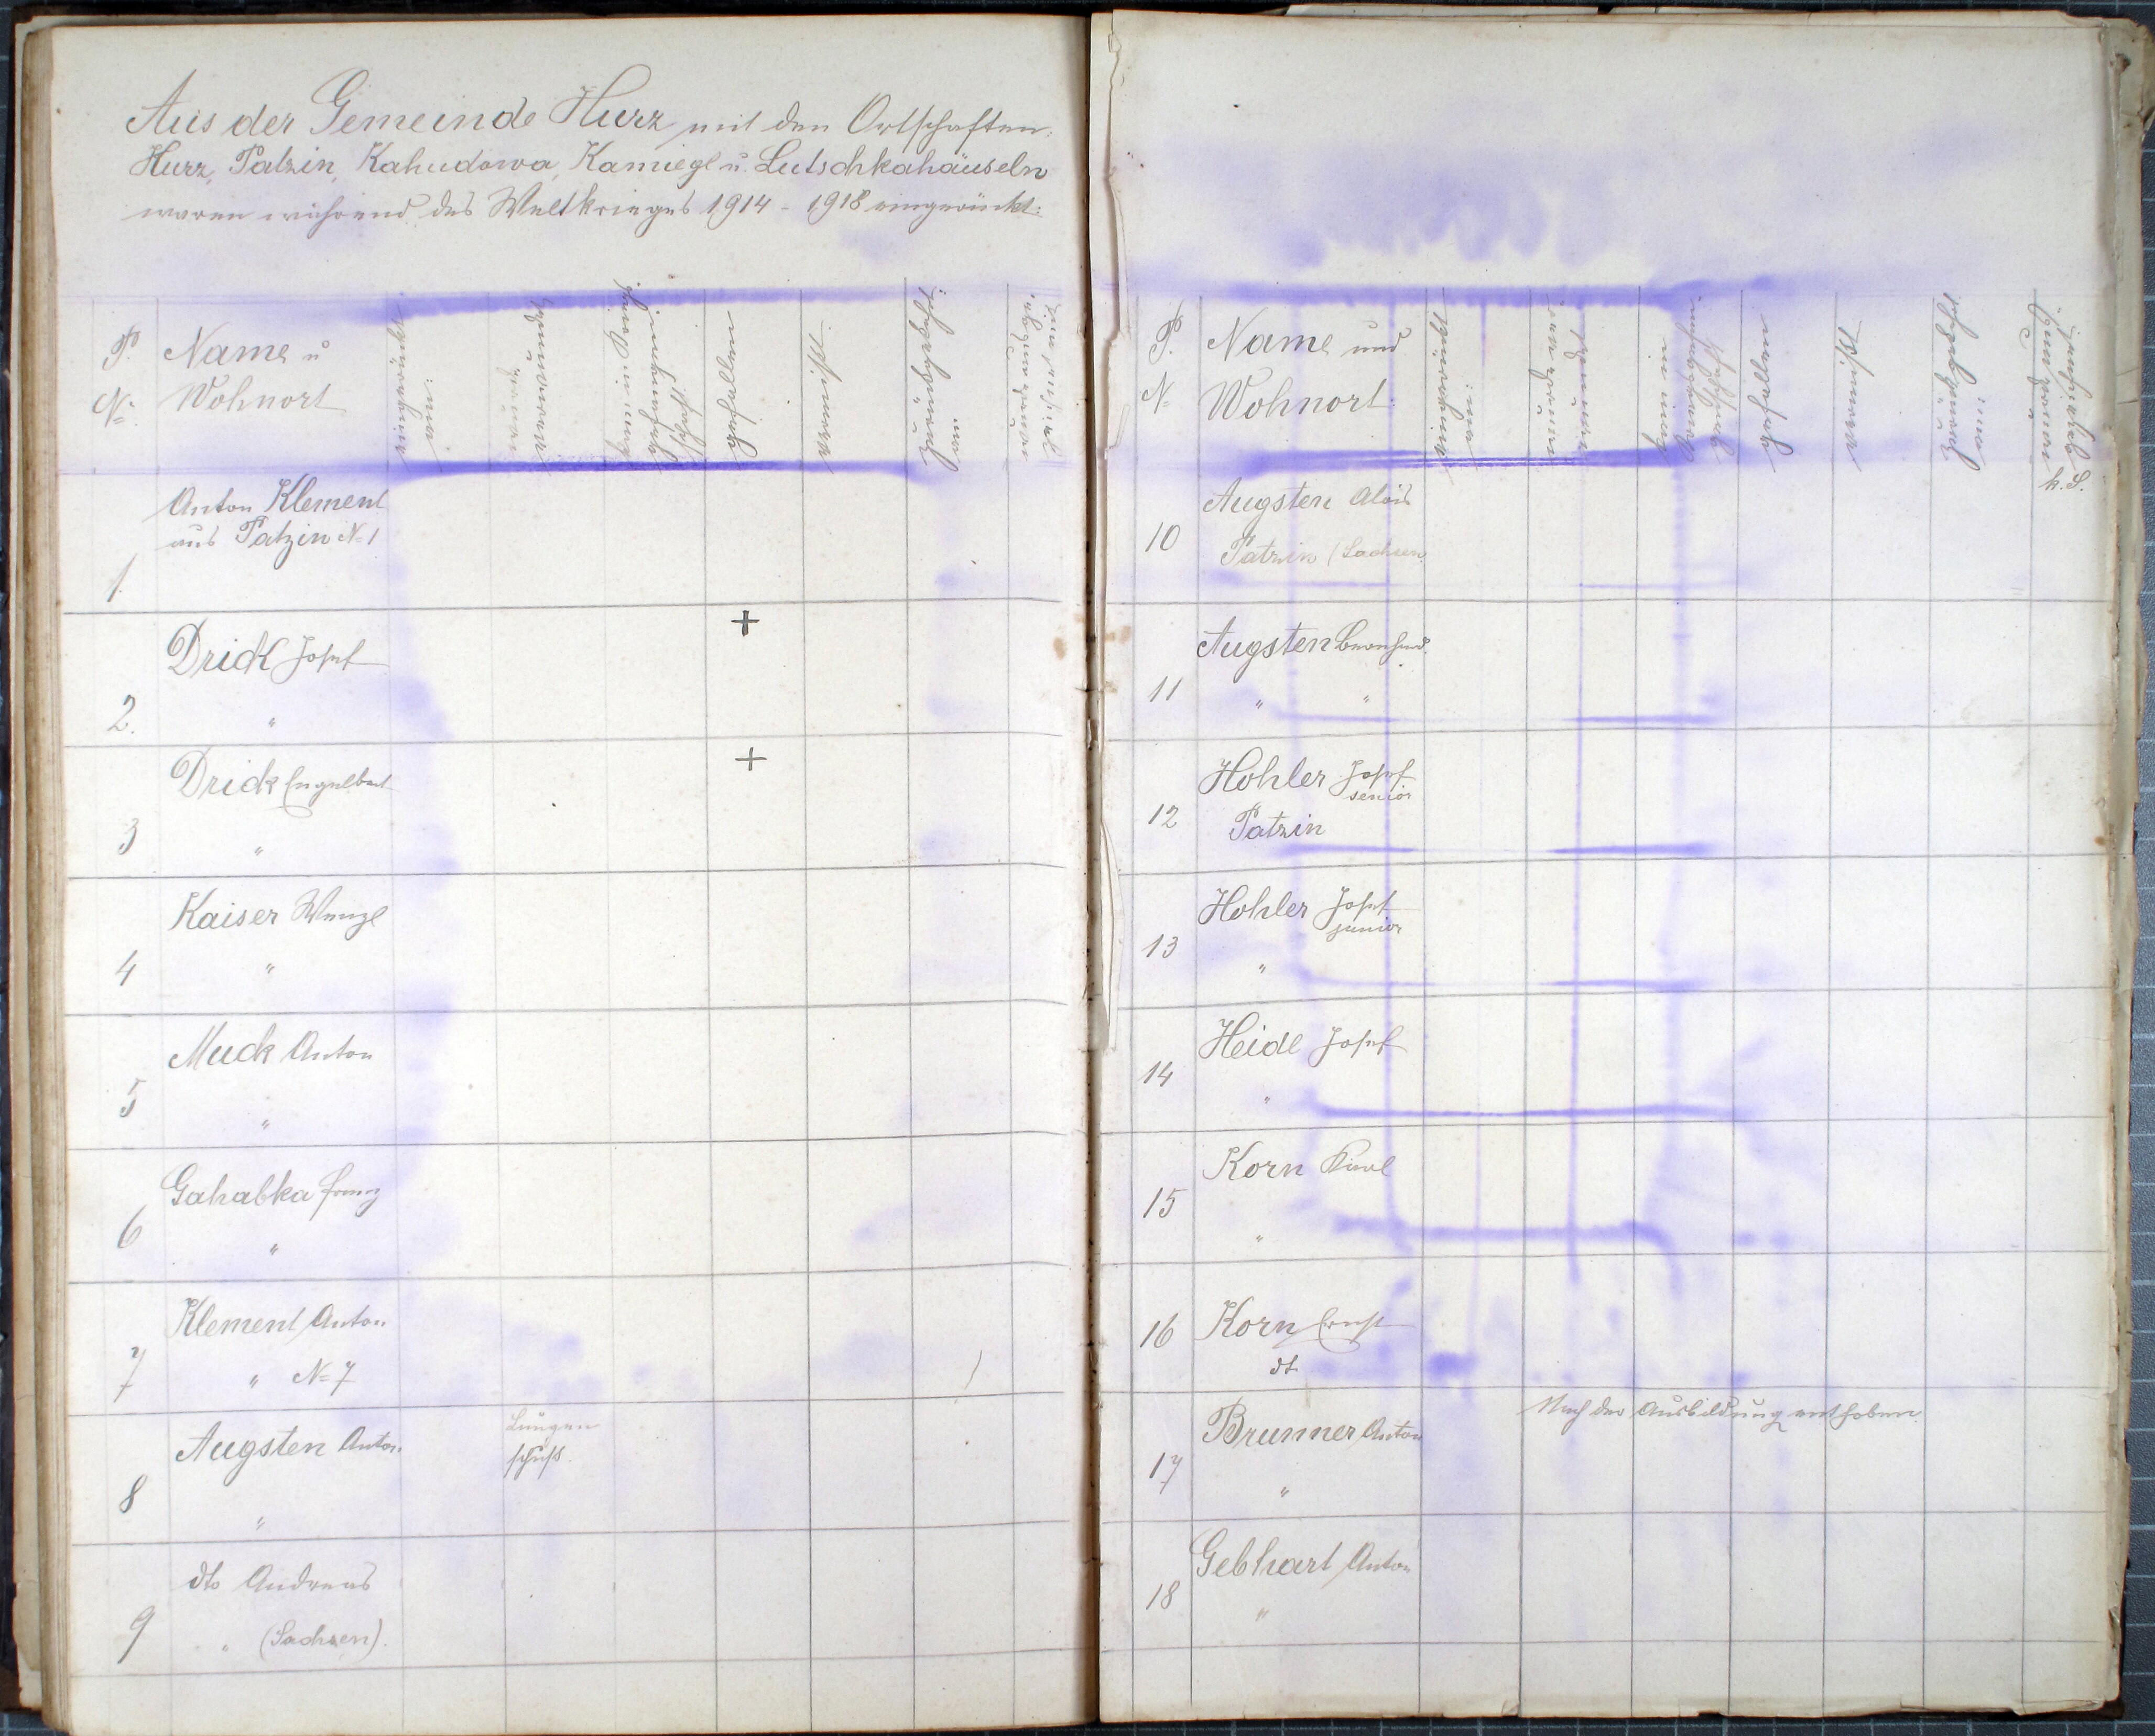 Aus der Gemeinde Hurz mit den Ortschaften:
Hurz, Patzin, Kahudowa, Kamiegl u. Lutschkahäuseln
waren während des Weltkrieges 1914 - 1918 eingerückt:
P. N.
Name u
Wohnort
eingerückt
am:
verwundet
kam in Kriegs
gefangen
schaft
gefallen
vermisst
zurückgekehrt
am
1.
Anton Klement
aus Patzin N 1
2.
Drick Josef
"
+
3
Drick Engelbert
"
+
4
Kaiser Wenzl
"
5
Muck Anton
"
6
Gahabka Franz
"
7
Klement Anton
" N=7
8
Augsten Anton
"
Lungen
schuß.
9
dto Andreas
" (Sachsen).
P. N.
Name und
Wohnort
eingerückt
am:
verwundet
kam in
gefallen
vermisst
zurückgekehrt
am:
10
Augsten Alois
Patzin (Sachsen
11
Augsten Bernhard.
" "
12
Hohler Josef
senior
Patzin
13
Hohler Josef
junior
"
14
Heidl Josef
"
15
Korn Karl
"
16
Korn Ernst
dt
17
Brunner Anton
"
Nach der Ausbildung enthoben
18
Gebhart Anton
"